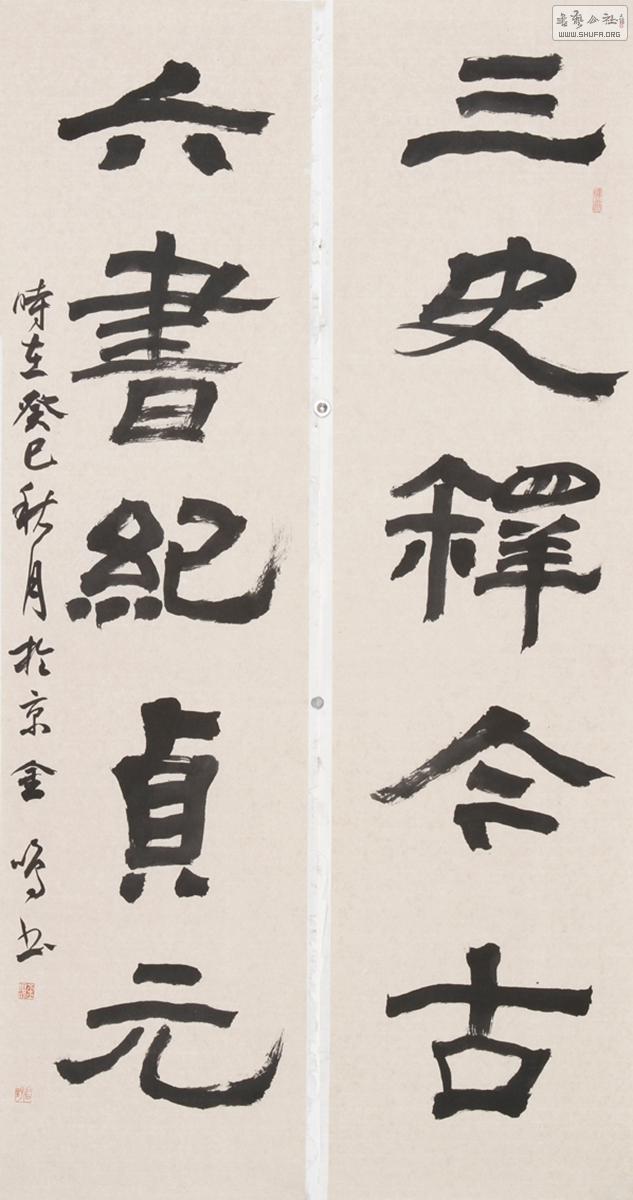 三史釋今古
六書紀貞元
時在癸巳秋月於京金鳴書
書藝公社
WWW.SHUFA.ORG